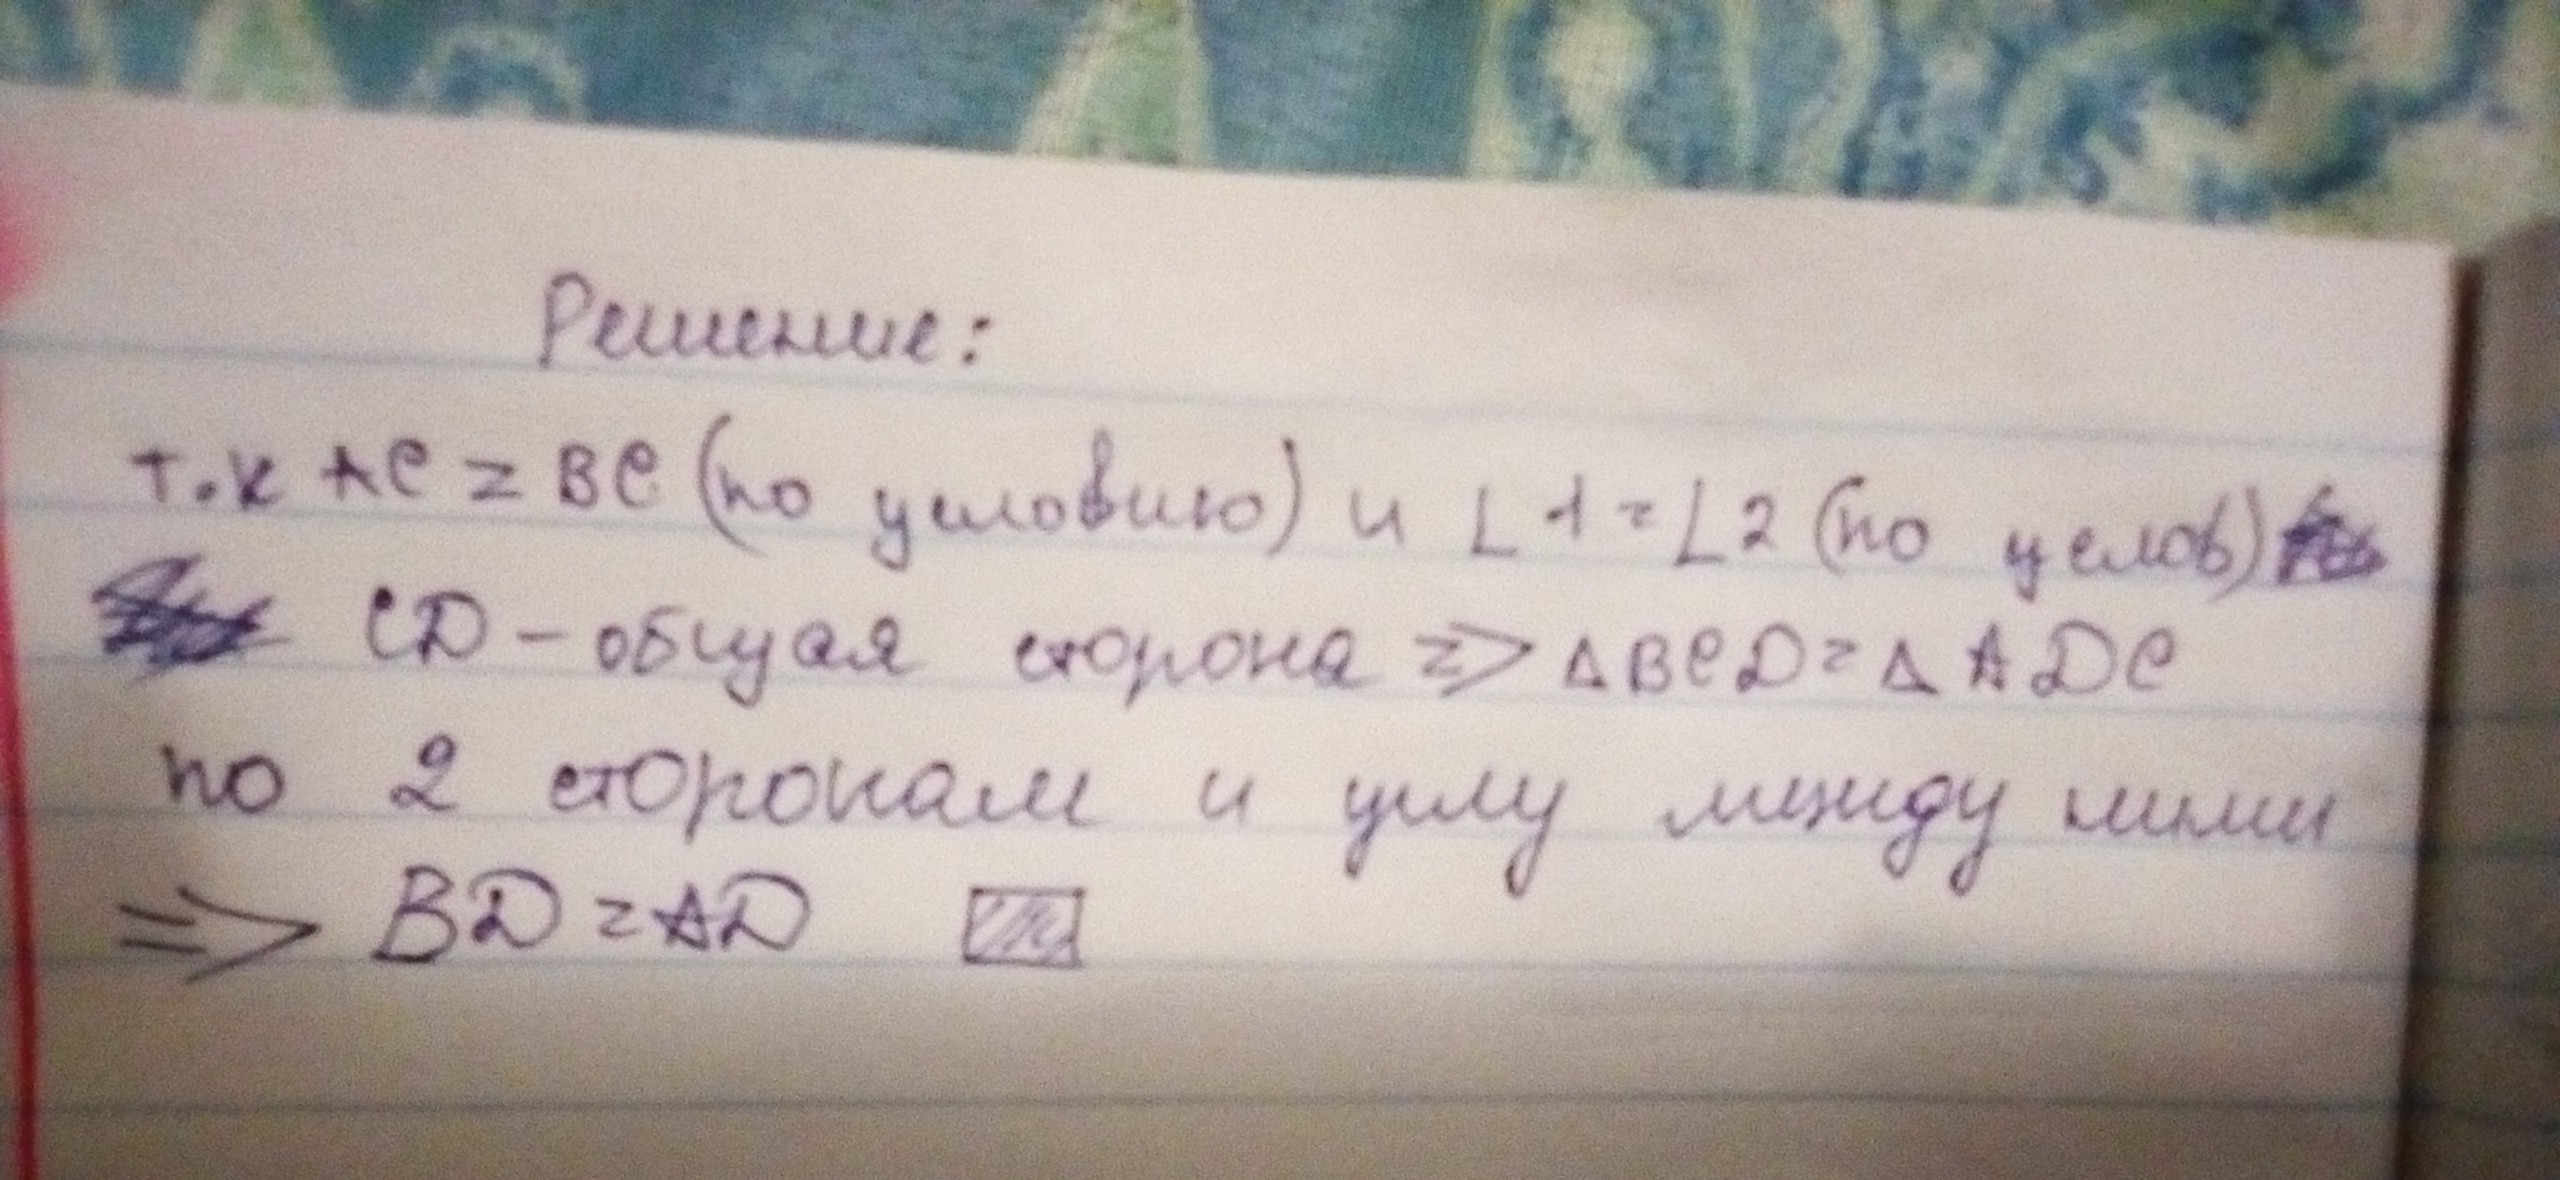 Решение:
т.к AC = BC (по условию) и ∠1=∠2 (по услов)
CD - общая сторона => ΔBCD = ΔADC
по 2 сторонам и углу между ними
=> BD = AD